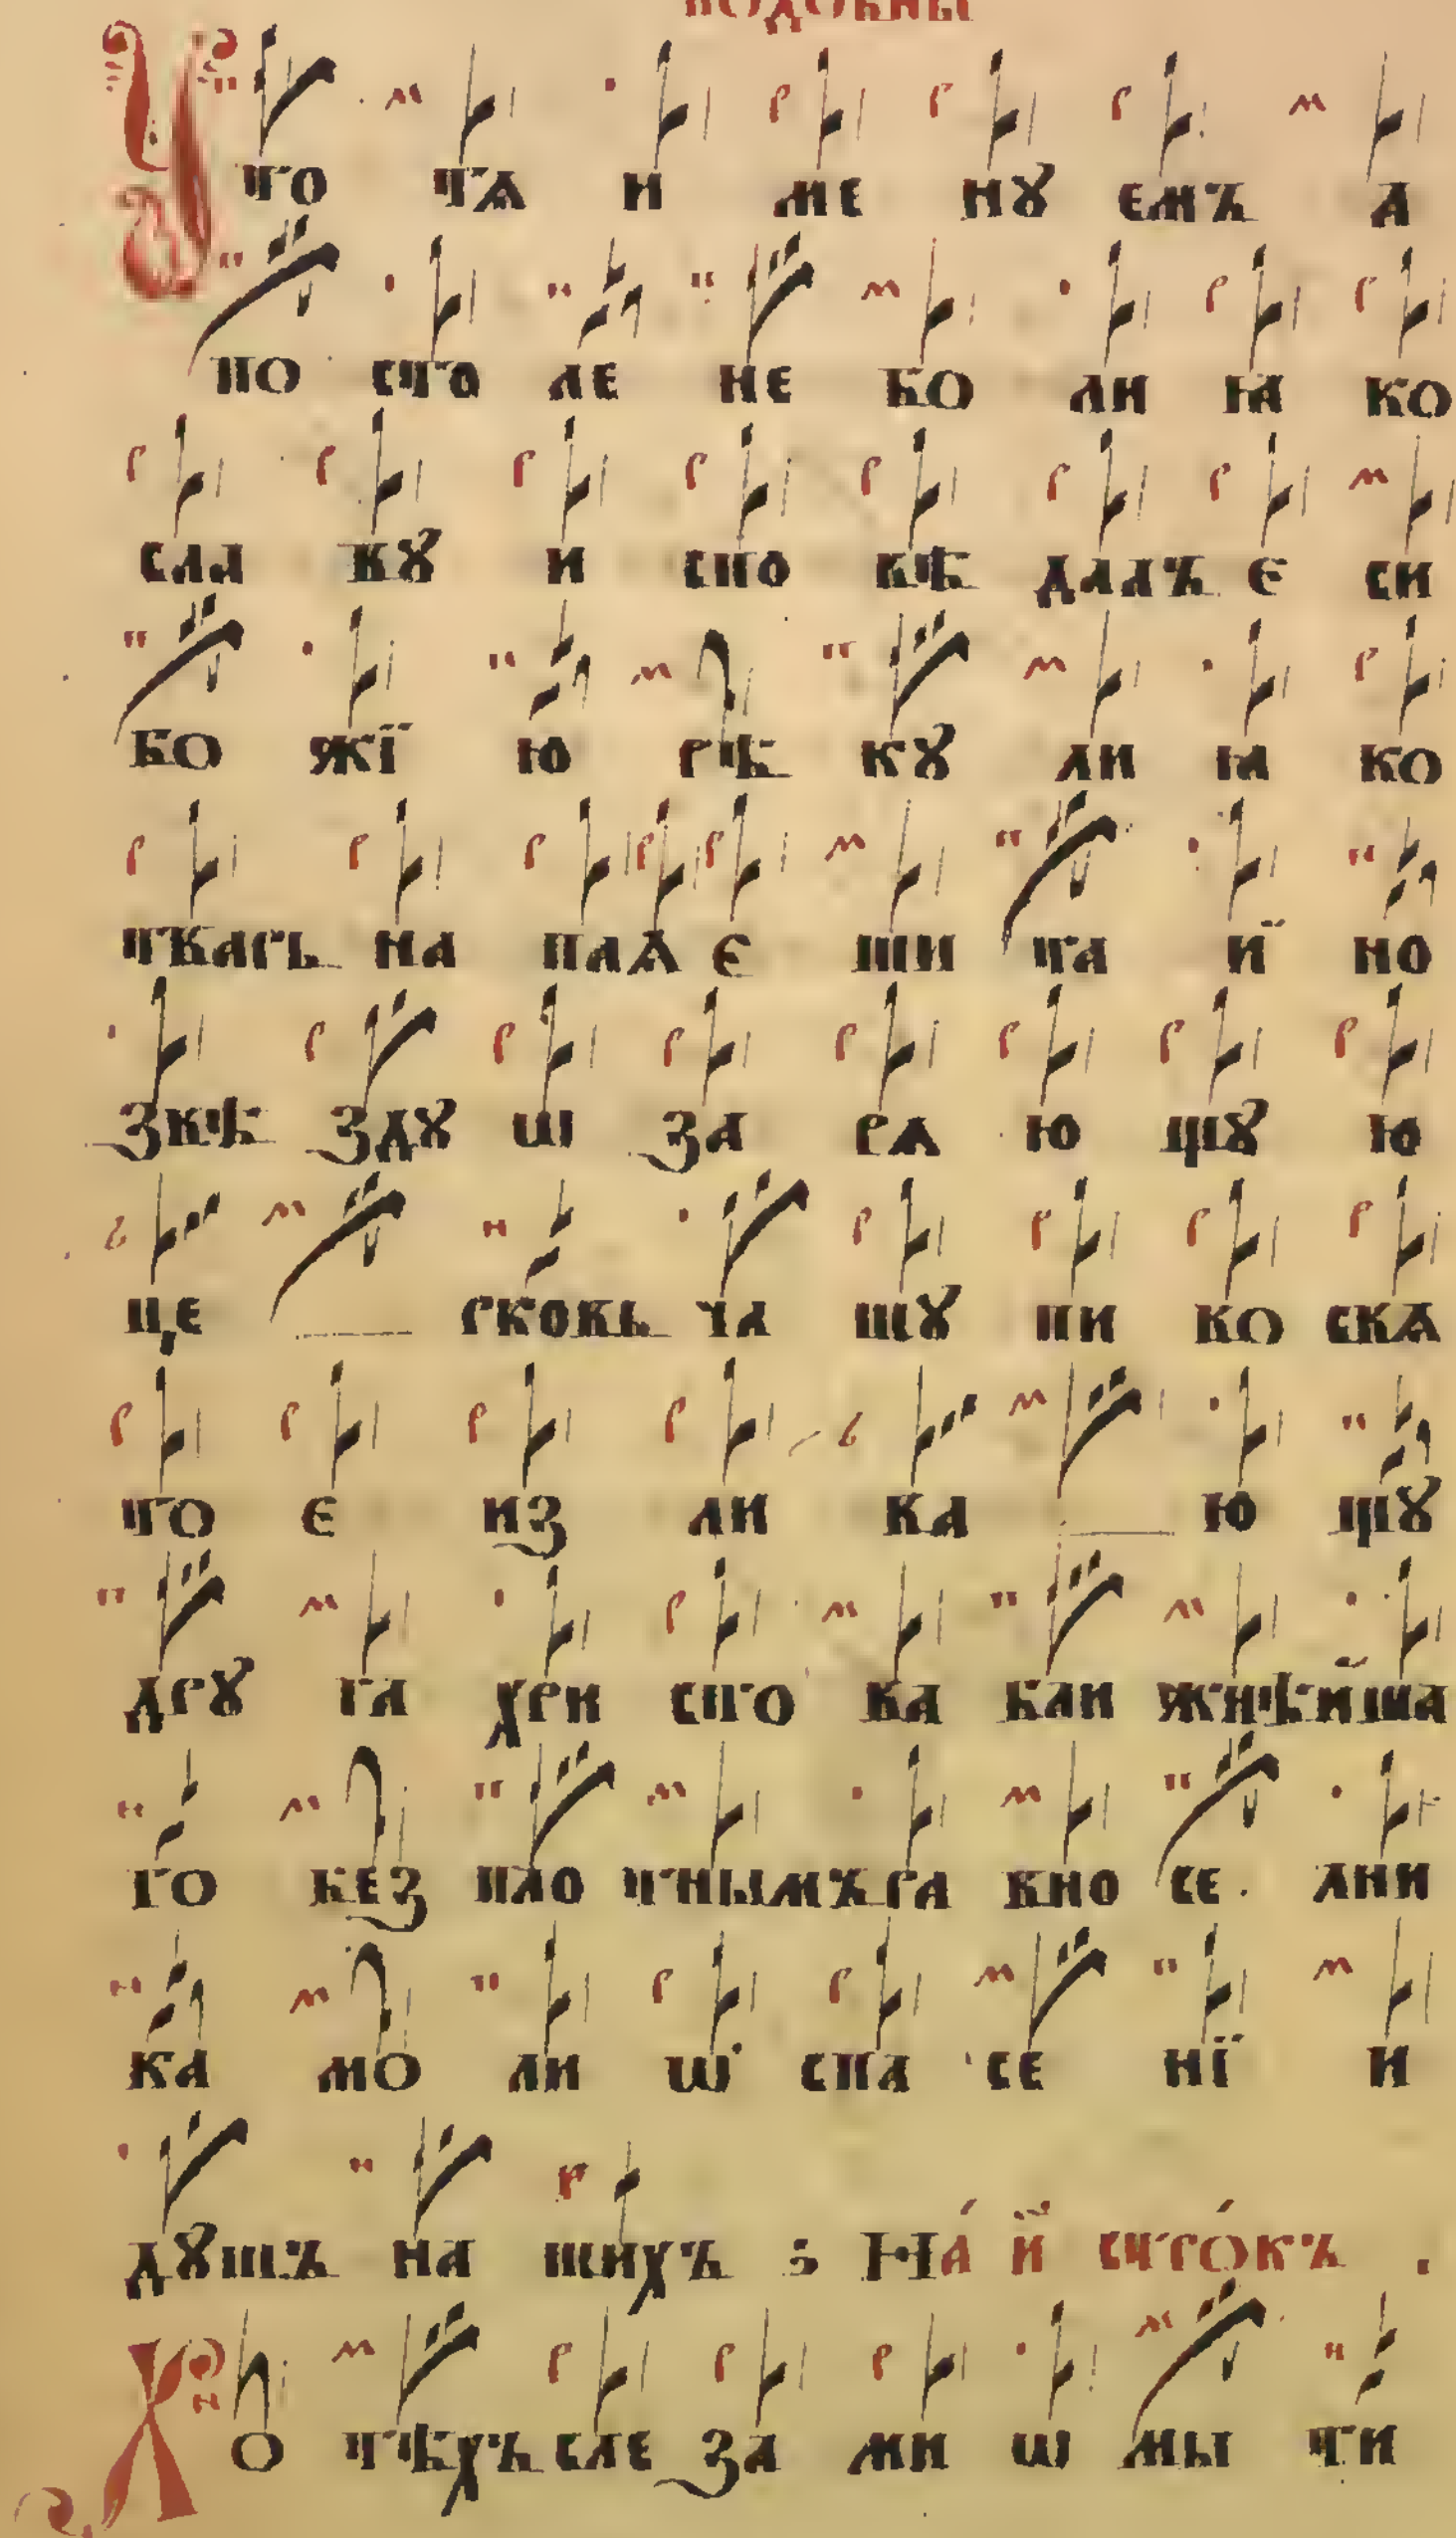 подобны
Что тѧ и ме нꙋ емъ а
по сто ле не бо ли ꙗ ко
сла вꙋ и спо вѣ далъ є си
бо жї ю рѣ кꙋ ли ꙗ ко
тварь на паѧ є ши та й но
звѣ здꙋ ли за рѧ ю щꙋ ю
це рковь ча шꙋ пи во скѧ
то є из ли ва ю щꙋ
дрꙋ га хри сто ва бли жнѣйша
го без пло тнымъ ра вно се лни
ка мо ли ѡ спа се нї и
дꙋшъ на шихъ з На и҃ стго́въ .
Хо тѣхъ сле за ми ѡ мы ти